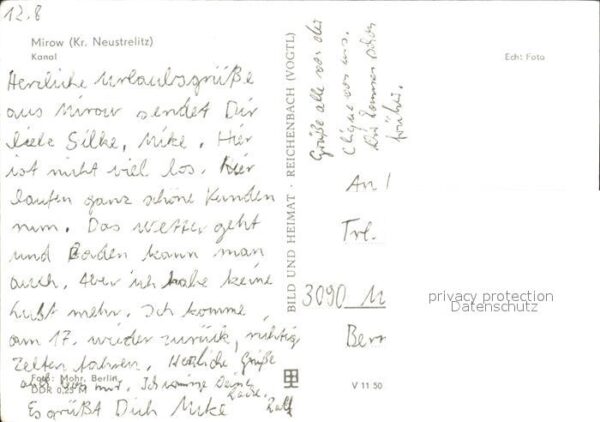 12.8
Mirow (Kr. Neustrelitz)
Kanal
Herzliche Urlaubsgrüße
aus Mirow sendet Dir
liebe Silke, Mike. Hier
ist nicht viel los. Hier
laufen ganz schöne Kunden
rum. Das Wetter geht
und Baden kann man
auch. Aber ich habe keine
Lust mehr. Ich komme
am 17. wieder zurück, richtig
Zelten fahren. Herzliche Grüße
auch von mir. Ich
Es grüßt Dich Mike Ralf
Foto: Mohr, Berlin
DDR 0,25 M
BILD UND HEIMAT · REICHENBACH (VOGTL)
Grüße alle von der
Clique von uns.
Die kommen schon
früher.
Echt Foto
An
Frl.
3090 M
Berr
V 11 50
privacy protection
Datenschutz